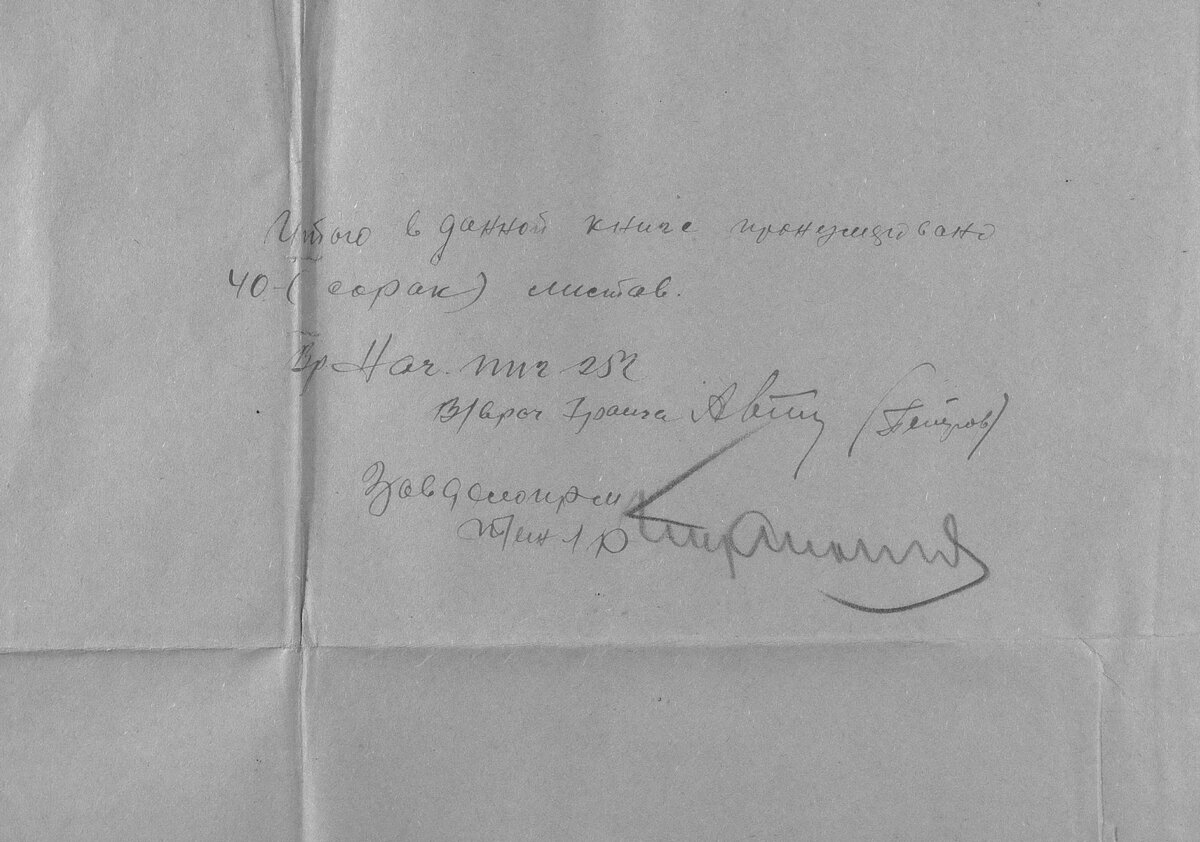 Итого в данной книге пронумеровано
40-(сорак) листав.
Вр Нач. ппг 252
В/врач 3 ранга (Петров)
Завделопр-м
Техн 1 р